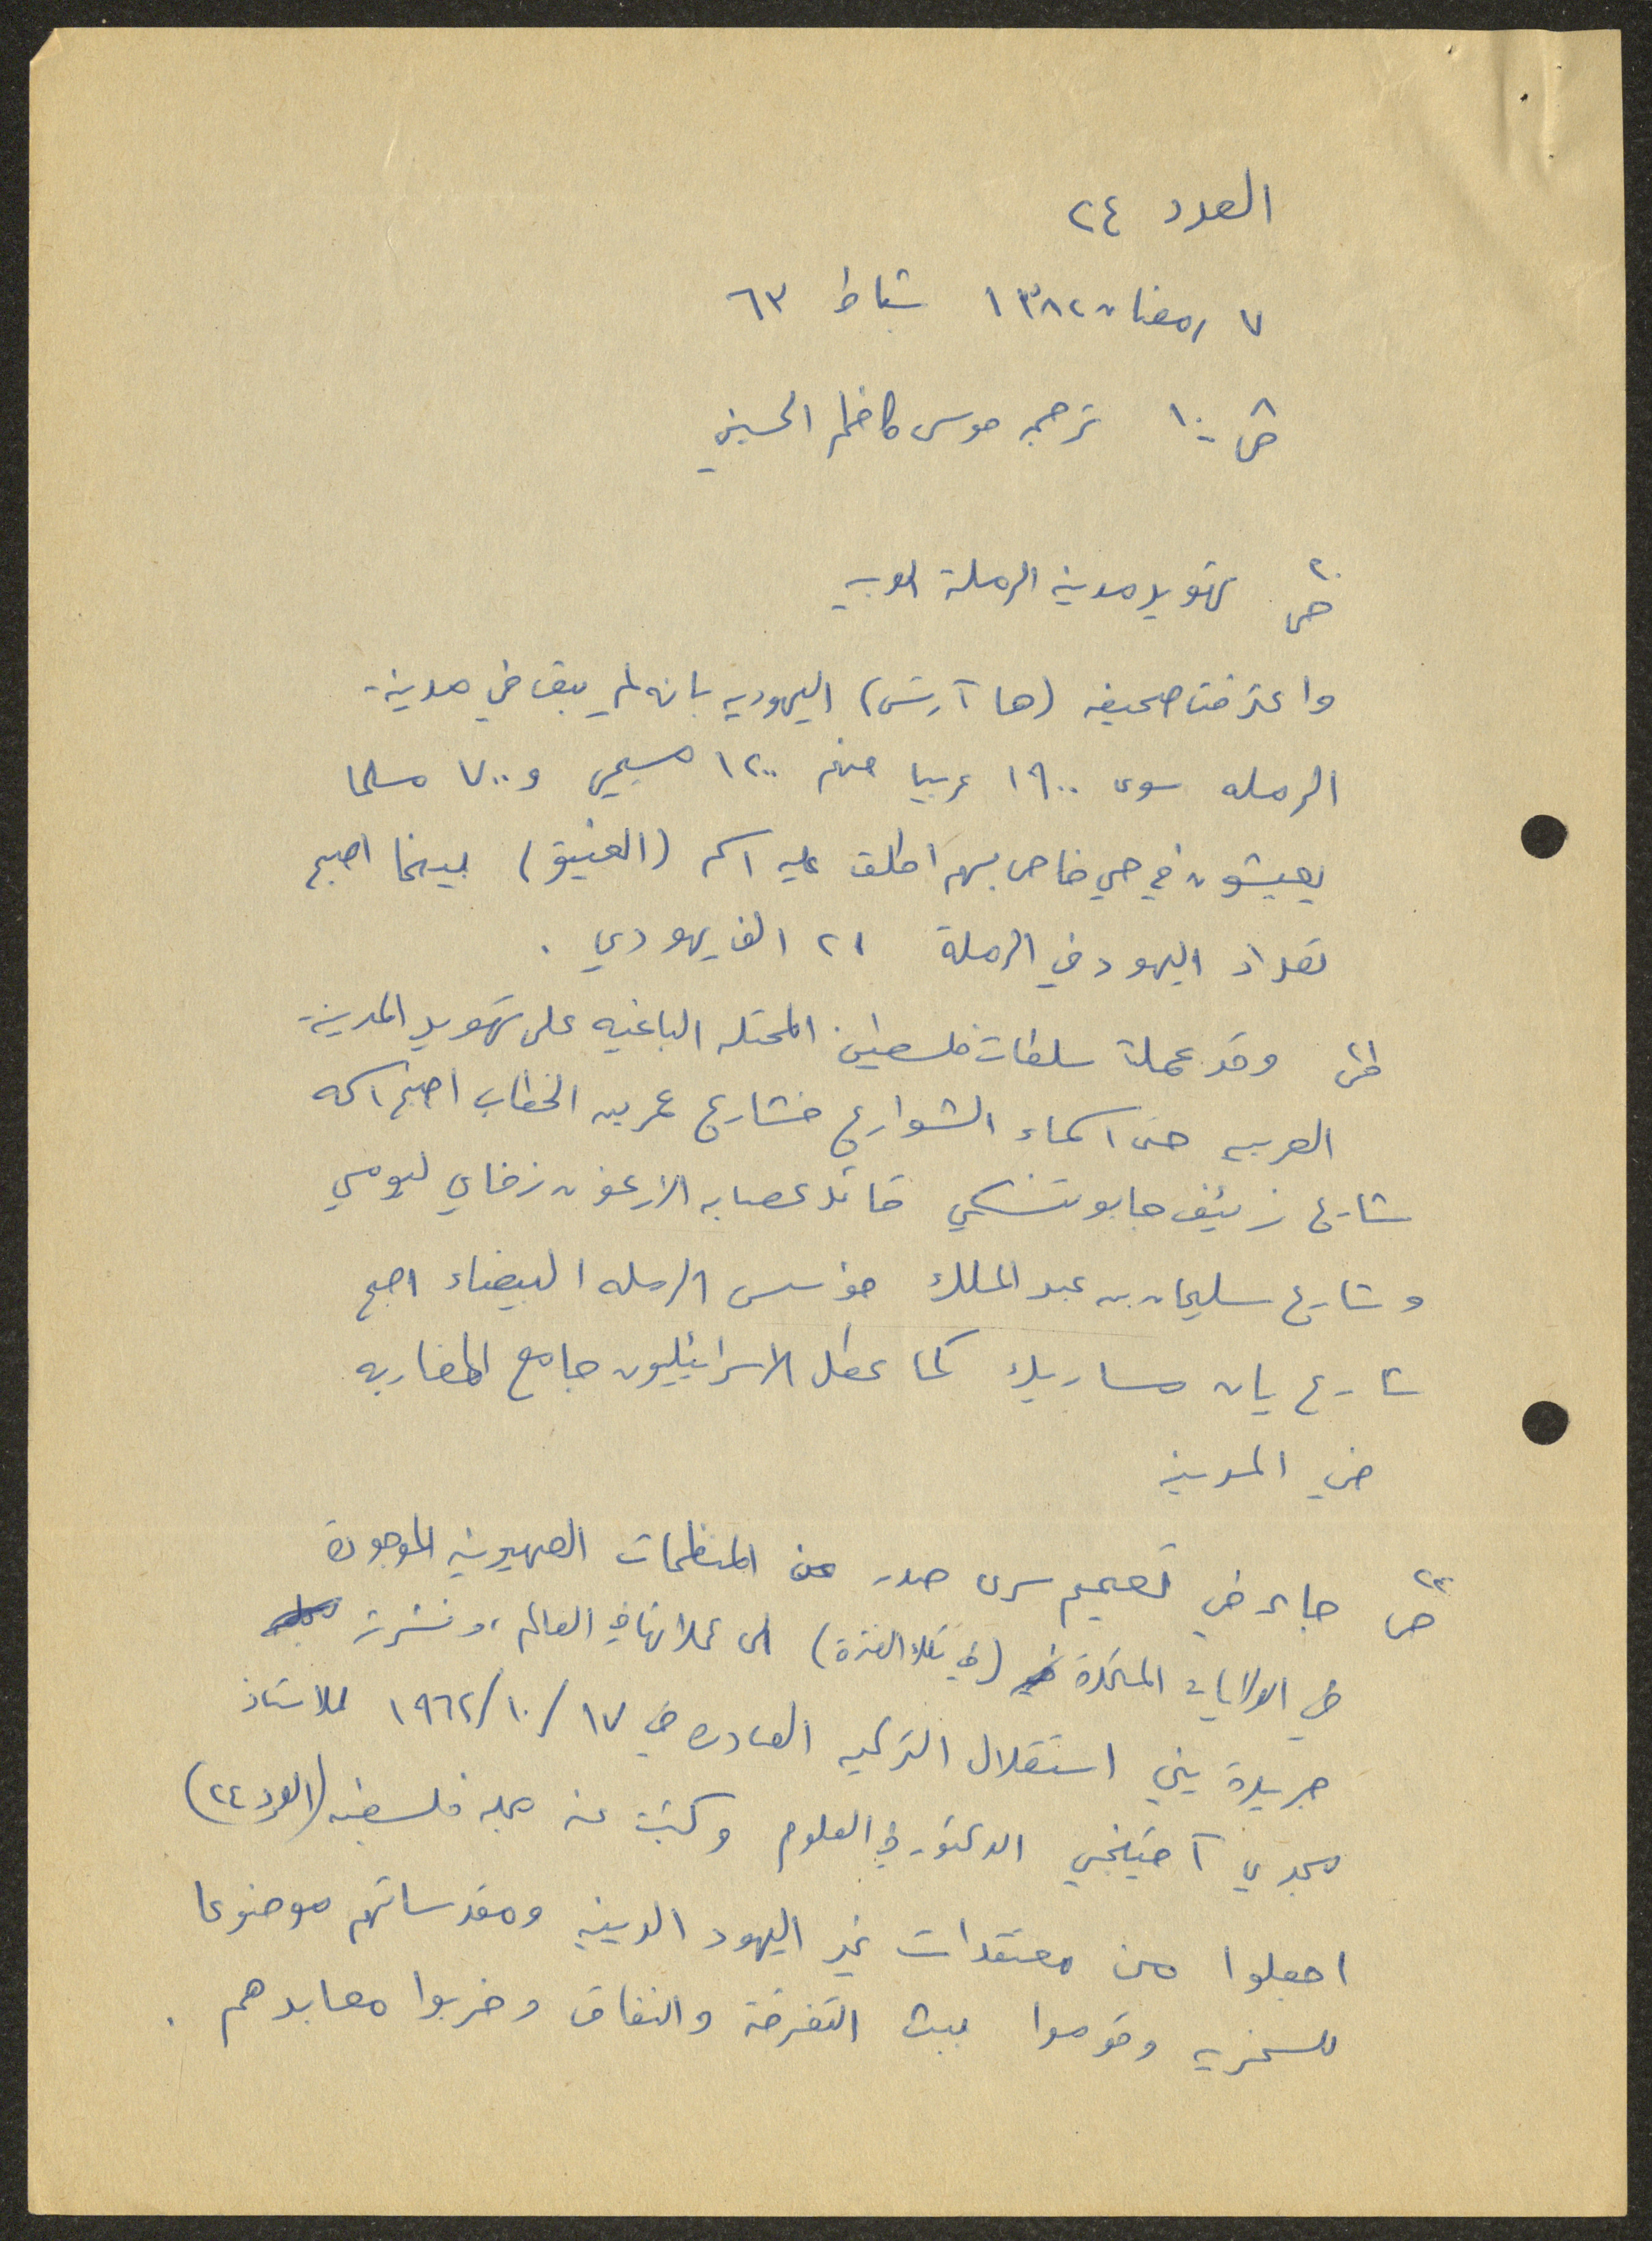 العدد ٢٤
٧ رمضان ١٣٨٢ شباط ٦٣
ص ٨ - ١٠ ترجمه موسى كاظم الحسيني
ص ٢٠ تهويد مدينه الرملة العربيه
واعترفت صحيفه (ها آرتس) اليهوديه بانه لم يبق في مدينة
الرمله سوى ١٩٠٠ عربيا منهم ١٢٠٠ مسيحي و ٧٠٠ مسلما
يعيشون في حي خاص بهم اطلق عليه اسم (العتيق) بينما اصبح
تعداد اليهود في الرملة ٢١ الف يهودي .
وقد عملت سلطات فلسطين المحتله الباغيه على تهويد المدينة
العربيه حتى اسماء الشوارع فشارع عمر بن الخطاب اصبح اسمه
شارع زئيف جابوتنسكي قائد عصابه الارغون زفاي ليومي
وشارع سليمان بن عبد الملك مؤسس الرمله البيضاء اصبح
شارع يان مساريك كما عطل الاسرائيليون جامع المغاربه
في المدينه
ص ٢٣ جاء في تعميم سرى صدر عن المنظمات الصهيونيه الموجودة
في الولايات المتحدة (في تلك الفترة) الى عملائها في العالم ، ونشرت
جريدة يني استقلال التركيه الصادره في ١٧ / ١٠ / ١٩٦٢ للاستاذ
مجدي آ الدكتور في العلوم وكتبت عنه مجله فلسطين (العدد ٢٤)
اجعلوا من معتقدات غير اليهود الدينيه ومقدساتهم موضوعا
للسخريه وقوموا ببث التفرقة والنفاق وخربوا معابدهم .